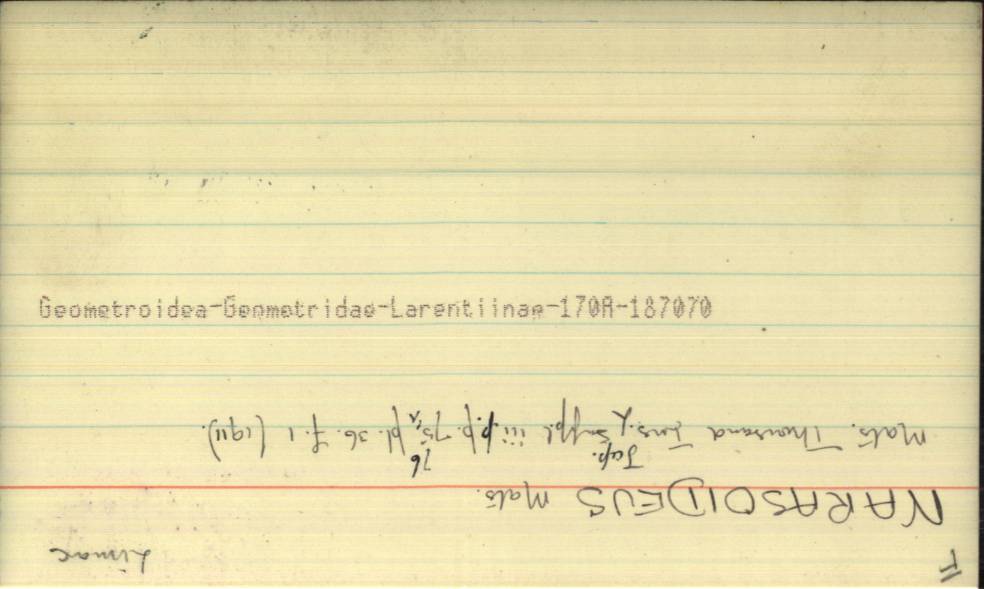 F Limac
NARASOIDEUS Mats.
Mats. Thousand Ins. Jap. Suppl. iii. pp. 75, 76 pl. 36. f. 1 (1911).
Geometroidea-Geometridae-Larentiinae-170A-187070